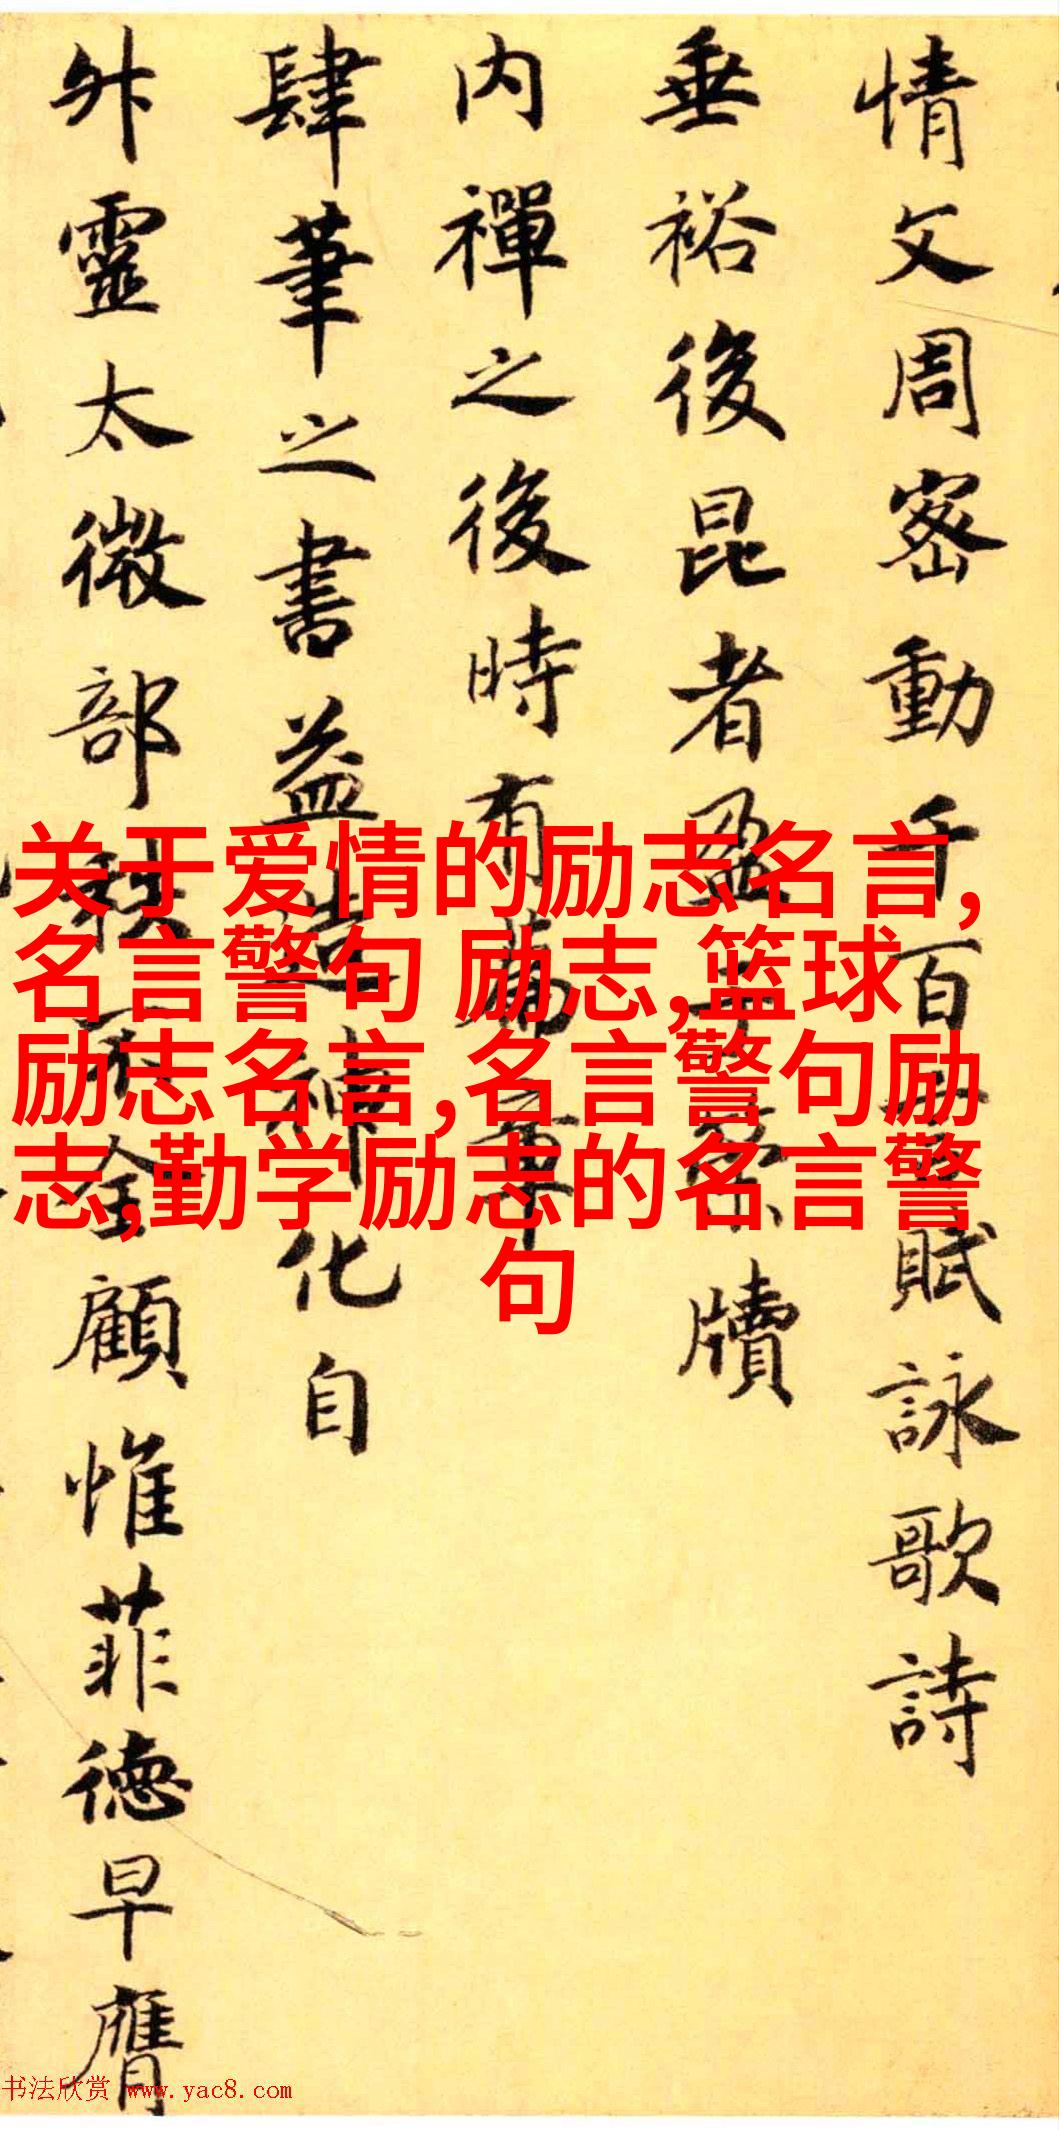 情文周密動千百賦詠歌詩
垂裕後昆者盈牘
内禪之後時有篇章
肆筆之書益造神化自
升靈太微部顧惟菲德早膺
关于爱情的励志名言,
名言警句 励志,篮球
励志名言,名言警句励
志,勤学励志的名言警
句
书法欣赏 www.yac8.com